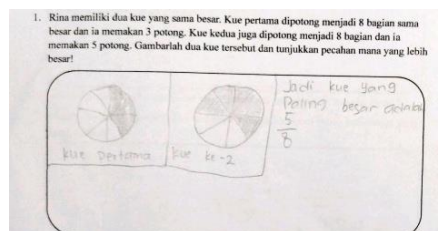 1. Rina memiliki dua kue yang sama besar. Kue pertama dipotong menjadi 8 bagian sama
besar dan ia memakan 3 potong. Kue kedua juga dipotong menjadi 8 bagian dan ia
memakan 5 potong. Gambarlah dua kue tersebut dan tunjukkan pecahan mana yang lebih
besar!
Jadi kue yang
Paling besar adalah
5
8
kue pertama
kue ke-2